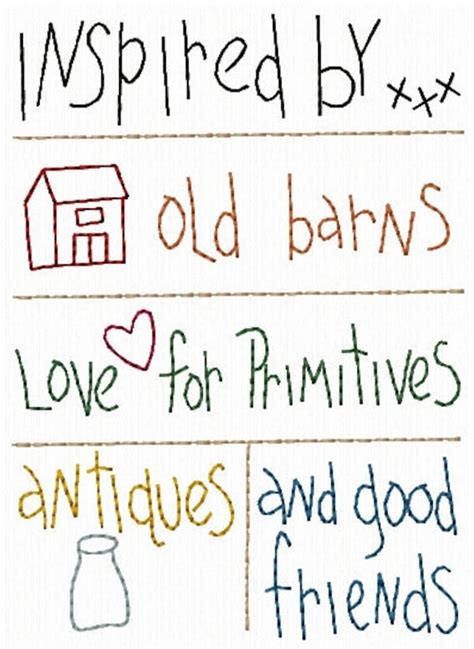 INSpired bY xxx
old barNS
Love for PriMitiVes
aNtiques
aNd good
frieNds